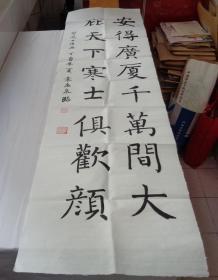 安得廣厦千萬間大
庇天下寒士俱歡顔